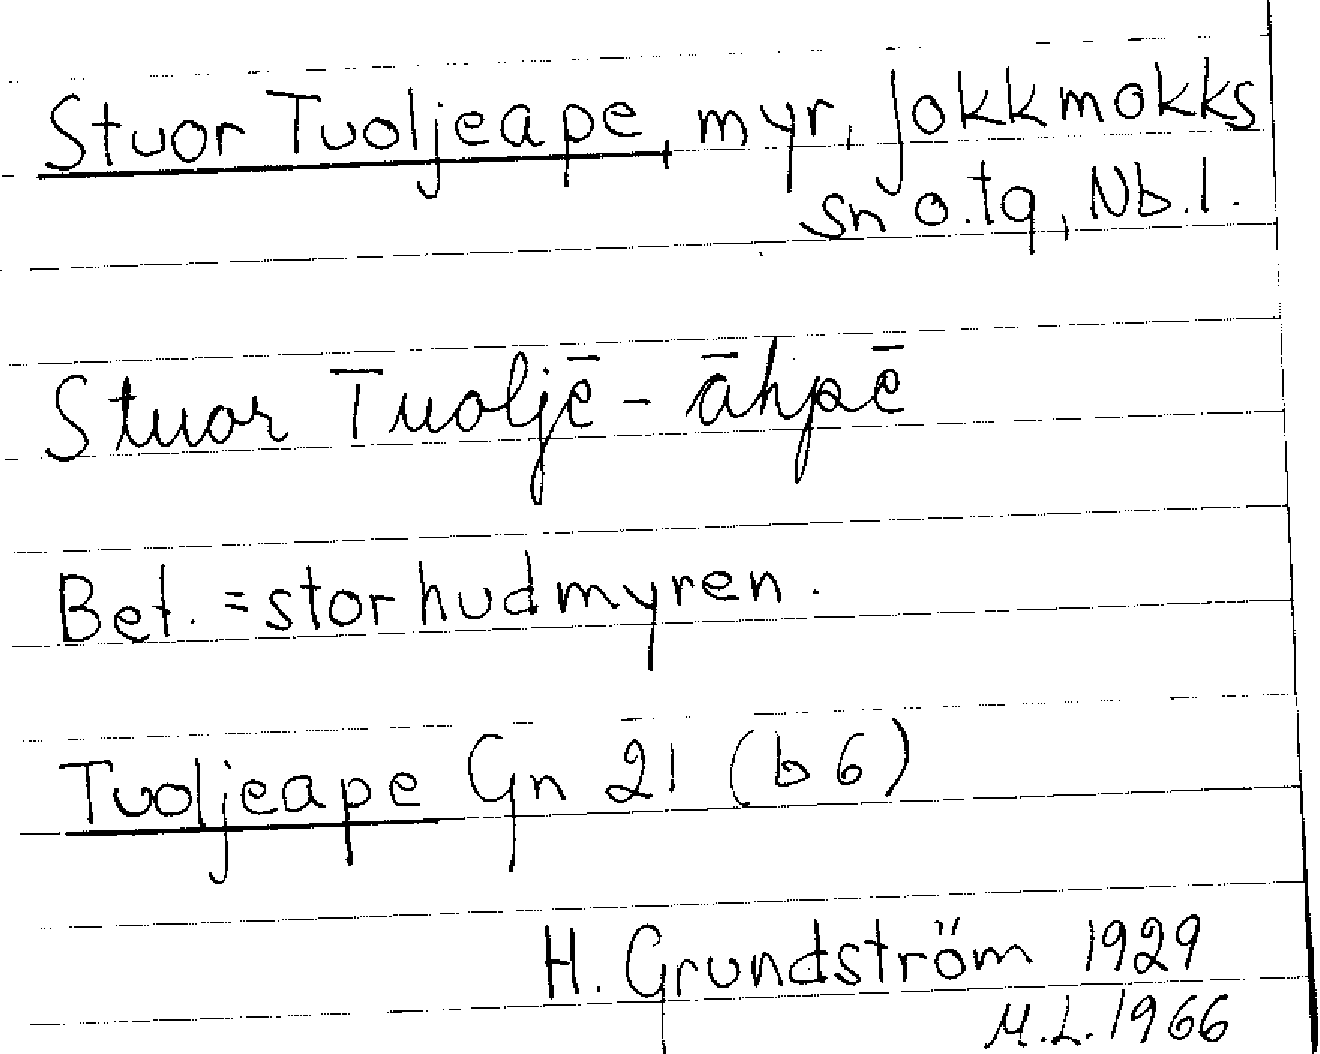 Stuor Tuoljeape, myr, Jokkmokks
sn o. tg, Nb. l.
Stuor Tuoljē-āhpē
Bet. = storhudmyren.
Tuoljeape Gn 21 (b 6)
H. Grundström 1929
M.L. 1966